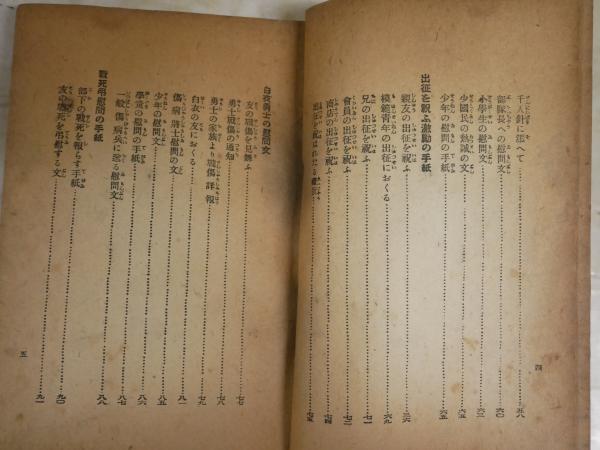 千人針に添へて……五八
部隊長への慰問文……六〇
小學生の慰問文……六二
少國民の熱誠の文……六五
少年の慰問の手紙……六五
出征を祝ふ激勵の手紙
親友の出征を祝ふ……六六
模範青年の出征におくる……六九
兄の出征を祝ふ……七一
會員の出征を祝ふ……七二
商店の出征を祝ふ……七四
四
白衣勇士の慰問文
友の戰傷を見舞ふ……七七
勇士戰傷の通知……七八
勇士の家族より戰傷詳報
白衣の友におくる……七九
傷病將士慰問の文……八一
少年の慰問文……八五
學童の慰問の手紙……八六
一般傷病兵に送る慰問文……八七
戰死弔慰問の手紙……八八
部下の戰死を報らす手紙……九〇
友の戰死を弔慰する文……九一
五